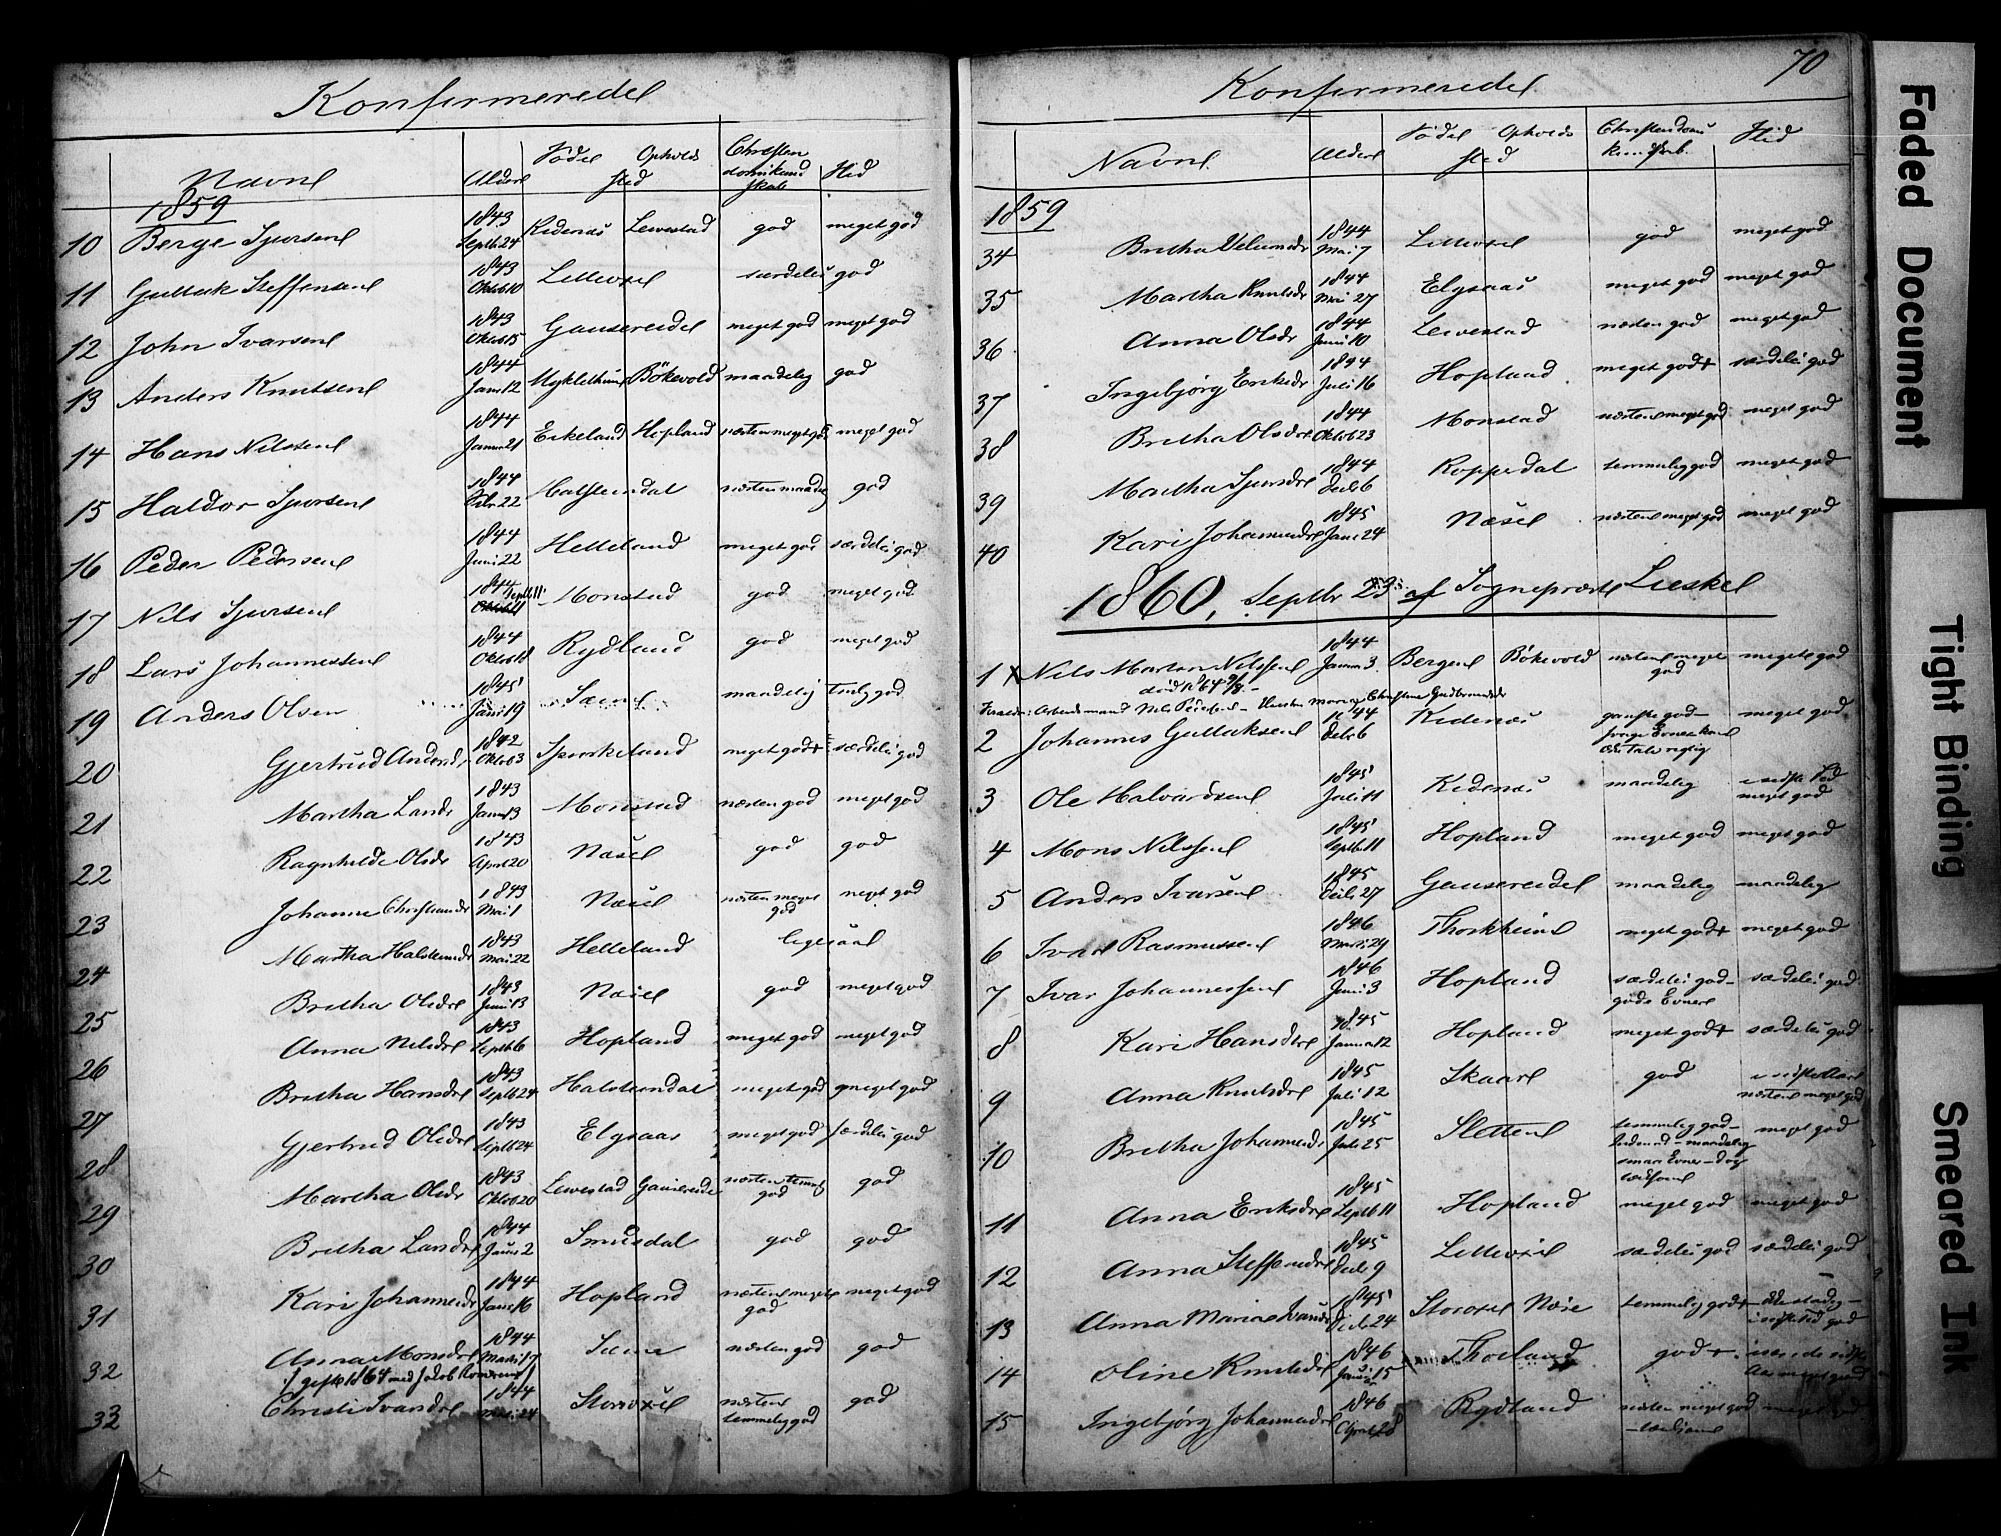 Konfirmerede
Navne Alder Føde Opholds sted Christendomskundskab Flid
1859
10 Berge Sjursen 1843 Septb 24 Kidenæs Levestad god meget god
11 Gullak Steffensen 1843 Oktob 10 Lilleoxel særdeles god
12 John Ivarsen 1843 Oktob 15 Gausereidet meget god meget god
13 Anders Knutsen 1844 Jan 12 Myklethun Bökevold maadelig god
14 Hans Nilssen 1844 Januar 21 Eikeland Hopland næsten meget god meget god
15 Haldor Sjursen 1844 Febr 22 Halsteindal næsten maadelig god
16 Peder Pedersen 1844 Juni 22 Helleland meget god særdeles god
17 Nils Sjursen 1844 Septb 11 Monstad god meget god
18 Lars Johannessen 1844 Oktob 18 Rydland god meget god
19 Anders Olsen 1845 Janu 19 Sæm maadelig god
20 Gjertrud Andersd 1842 Oktob 3 Spurkeland meget god + særdeles god
21 Martha Larsdr 1843 Janu 13 Monstad næsten god meget god
22 Ragnhilde Olsdr 1843 April 20 Næsel god god
23 Johanne 1843 Mai 1 Næsel næsten meget god meget god
24 Martha Halsteinsdr 1843 Mai 22 Helleland ligesaa
25 Brita Olsdr 1843 Juni 13 Næsel god meget god
26 Anna Nilsdr 1843 Septb 6 Hopland meget god meget god
27 Britha Hansdr 1843 Septb 24 Halsteindal meget god meget god
28 Gjertrud Olsdr 1843 Septb 24 Elgsaas meget god særdeles god
29 Martha Olsdr 1843 Oktob 20 Levestad Gausereide næsten temmelig god god
30 Britha Larsdr 1844 Janu 2 Smusdal god god
31 Kari Johannesdr 1844 Janu 16 Hopland næsten meget god meget god
32 Anna Monsdr 1844 Mars 17 Sæm næsten god god
gift 1864 med Jakob
33 Christi Ivarsdr 1844 24 Storoxel næsten temmelig god god
70
Konfirmerede
Navne Alder Føde Opholds sted Christendoms kundskab Flid
1859
34 Britha 1844 Mai 7 Lilleoxel god meget god
35 Martha Knutsdr 1844 Mai 27 Elgsaas meget god meget god
36 Anna Olsdr 1844 Juni 10 Levestad næsten god meget god
37 Ingebjörg Eriksdr 1844 Juli 16 Hopland meget god + særdeles god
38 Britha Olsdr 1844 Oktob 23 Monstad næsten meget god meget god
39 Martha Sjursdr 1844 Decb 6 Koppedal temmelig god meget god
40 Kari Johannesdr 1845 Jan 24 Næsel næsten meget god meget god
1860, Septbr 23 af Sognepræst Lieske
1 x Nils Martin Nilssen 1844 Januar 3 Bergen Bökevold næsten meget god meget god
död 1864 9/8
Forældre: Arbeidsmand Nils Pedersen - Hustru Christine Gudbrandsdr
2 Johannes Gullaksen 1844 Decb 6 Kidenæs ganske god meget god
3 Ole Halvardsen 1845 Juli 11 Kidenæs maadelig i sidste Tid meget god
4 Mons Nilssen 1845 Septb 11 Hopland meget god meget god
5 Anders Ivarsen 1845 Decb 27 Gausereidet maadelig maadelig
6 Ivar Rasmussen 1846 Mars 29 Thorkheim meget god + meget god
7 Ivar Johannessen 1846 Juni 3 Hopland særdeles god - gode Evner særdeles god
8 Kari Hansdtr 1845 Januar 12 Hopland meget god + særdeles god
9 Anna Knutsdr 1845 Juli 12 Skaar god i sidste Aar næsten meget god
10 Britha Johannesdr 1845 Juli 25 Sletten temmelig god - maadelig smaa Evner - dog meget god
11 Anna Eriksdr 1845 Septb 11 Hopland meget god meget god
12 Anna Steffensdr 1845 Decb 9 Lilleoxel særdeles god særdeles god
13 Anna Maria Ivarsdr 1845 Decb 24 Storoxel Næse temmelig god + ikke stadig - i sidste Tid god
14 Oline Knutsdr 1846 Janu 15 god + især i de sidste Aar meget god
15 Ingebjörg Johannesdr 1846 April 28 Rydland næsten meget god meget god
Faded Document
Tight Binding
Smeared Ink